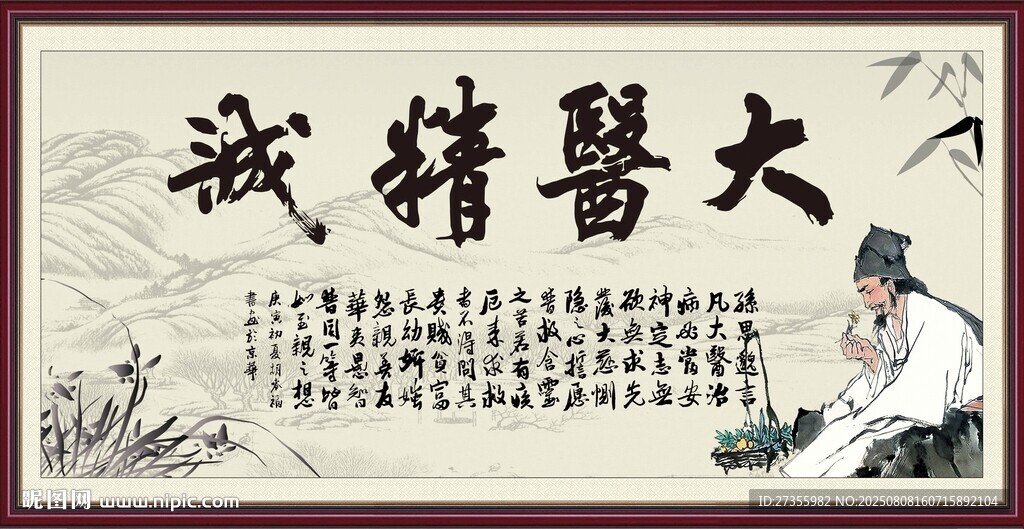 大醫精誠
孫思邈言
凡大醫治
病必當安
神定志無
欲無求先
發大慈惻
隐之心誓愿
普救含靈
之苦若有疾
厄来求救
者不得問其
貴賤貧富
長幼妍媸
怨親善友
華夷愚智
普同一等皆
如至親之想
庚寅初夏
書画於京華
昵图网 www.nipic.com
ID:27355982 NO:20250808160715892104